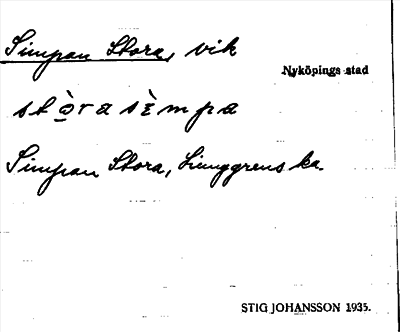 Simpan Stora, vik
Nyköpings stad
stò̱ra sɛ̀mpa
Simpan Stora, Ljunggrens ka.
STIG JOHANSSON 1935.